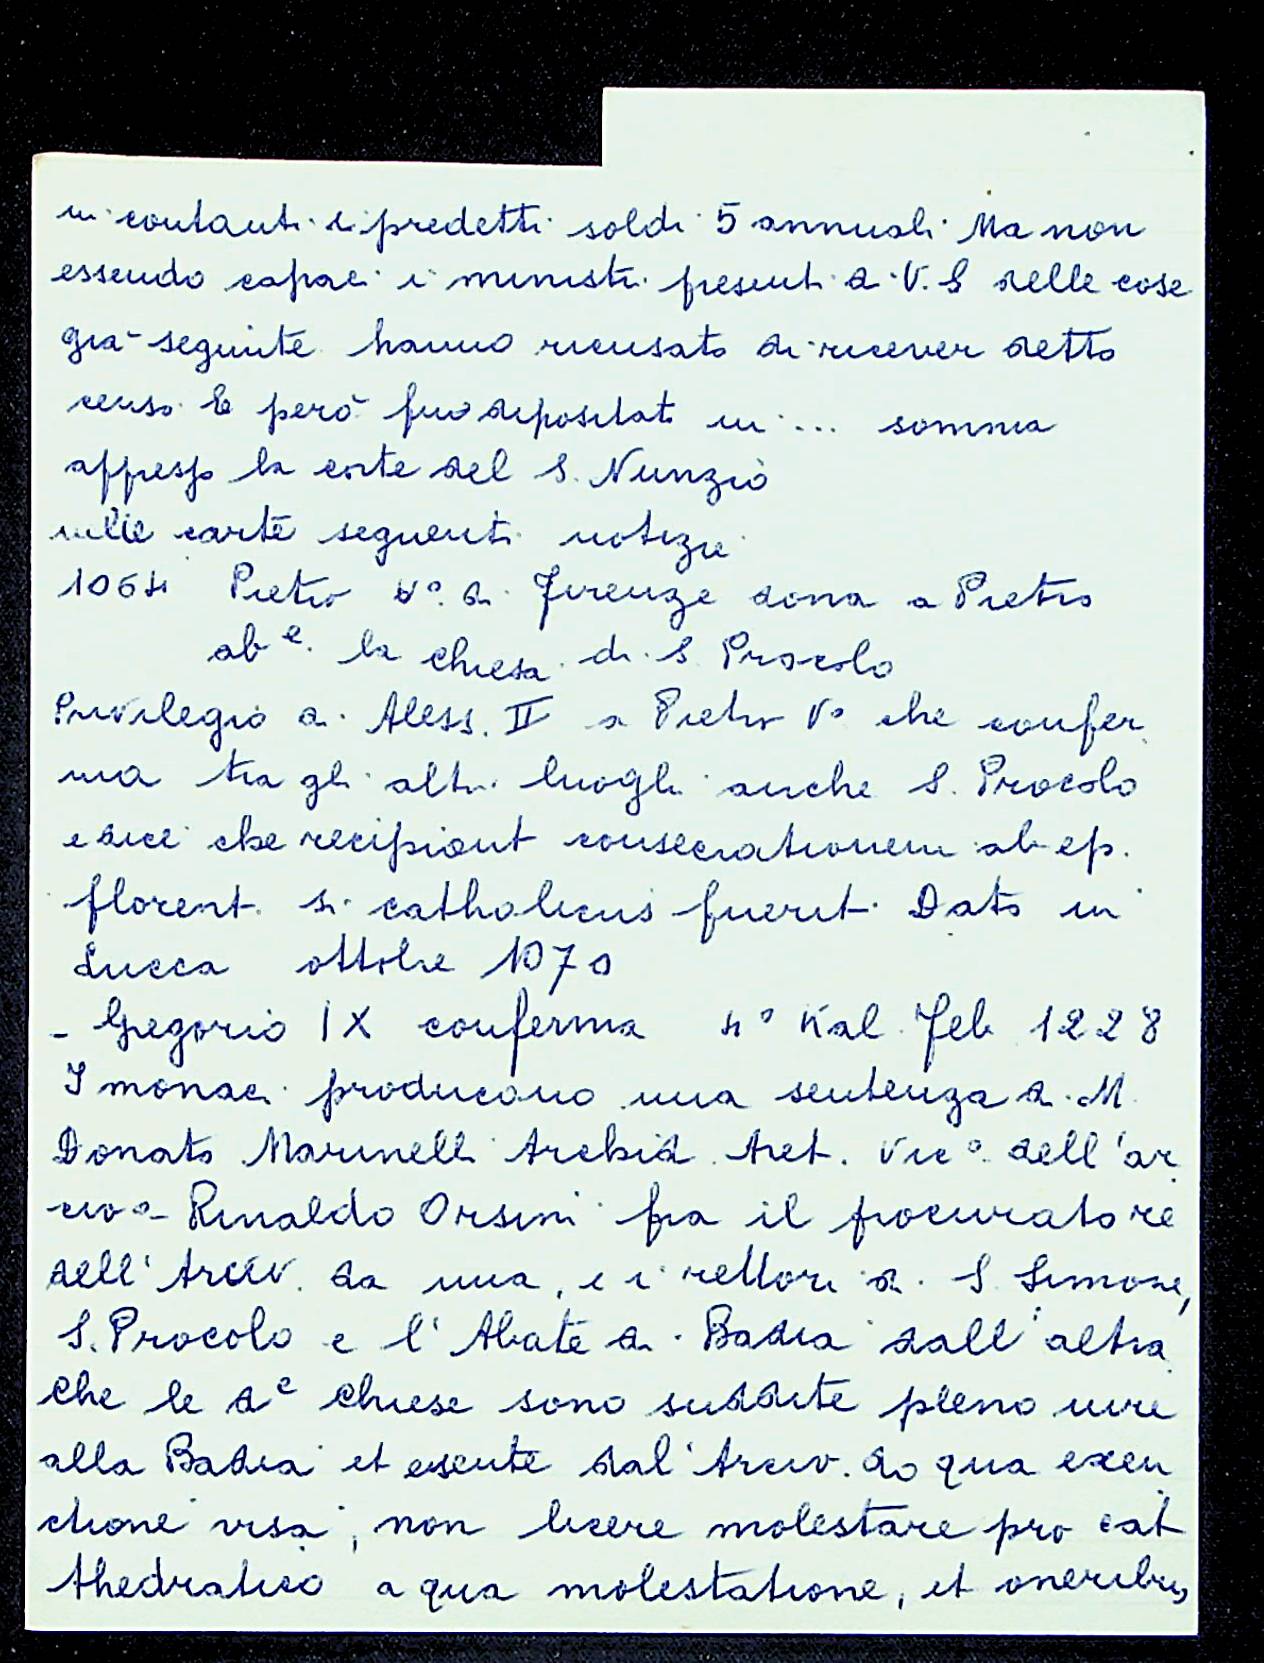 in contanti i predetti soldi 5 annuali Ma non
essendo capaci i ministri presenti di V. S delle cose
già seguite hanno ricusato di ricever detto
censo E però fu depositat in ... somma
appresso la corte del S. Nunzio
nelle carte seguenti notizie
1064 Pietro Vº di Firenze dona a Pietro
abᵉ. la chiesa di S. Procolo
Privilegio di Aless. II a Pietro Vº che confer
ma tra gli altri luoghi anche S. Procolo
e dice che recipiant consecrationem ab ep.
florent. si catholicus fuerit. Dato in
Lucca ottobre 1070
- Gregorio IX conferma 4º Kal Feb 1228
I monaci producono una sentenza di M.
Donato Marinelli Archid. Aret. Vicº dell'ar
civº Rinaldo Orsini fra il procuratore
dell'Arciv. da una, e i rettori di S. Simone,
S. Procolo e l'Abate di Badia dall'altra
che le dᵉ chiese sono suddite pleno iure
alla Badia et esente dal'Arciv. do qua exen
ctione visa, non licere molestare pro cat
thedratico a qua molestatione, et oneribus